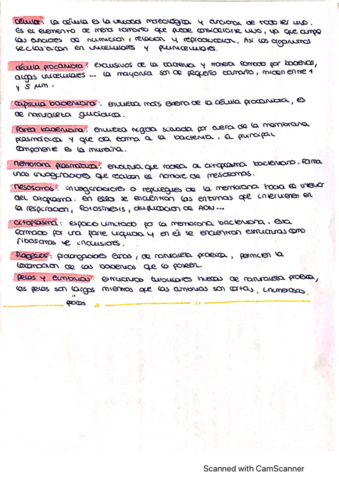 célula: la célula es la unidad morfológica y funcional de todo ser vivo.
Es el elemento de menor tamaño que puede considerarse vivo, ya que cumple
las funciones de nutrición, relación y reproducción. Así los organismos
se clasifican en unicelulares y pluricelulares.
célula procariota: exclusivos de las bacterias y formada por bacterias,
algas unicelulares... la mayoría son de pequeño tamaño, miden entre 1
y 5 μm.
cápsula bacteriana: envuelta más externa de la célula procariota, es
de naturaleza glucídica.
Pared bacteriana: envuelta rígida situada por fuera de la membrana
plasmática y que da forma a la bacteria. El principal
componente es la mureína.
membrana plasmática: envoltura que rodea al citoplasma bacteriano. Forma
unas invaginaciones que reciben el nombre de mesosomas.
Mesosomas: invaginaciones o repliegues de la membrana hacia el interior
del citoplasma. En ellos se encuentran los enzimas que intervienen en
la respiración, fotosíntesis, duplicación de ADN...
citoplasma: espacio limitado por la membrana bacteriana. Está
formado por una parte líquida y en él se encuentran estructuras como
ribosomas e inclusiones.
flagelos: prolongaciones de naturaleza proteica, permiten la
locomoción de las bacterias que lo poseen.
pelos y fimbrias: estructuras tubulares huecas de naturaleza proteica,
los pelos son largos mientras que las fimbrias son cortas, numerosas.
pocos
Scanned with CamScanner